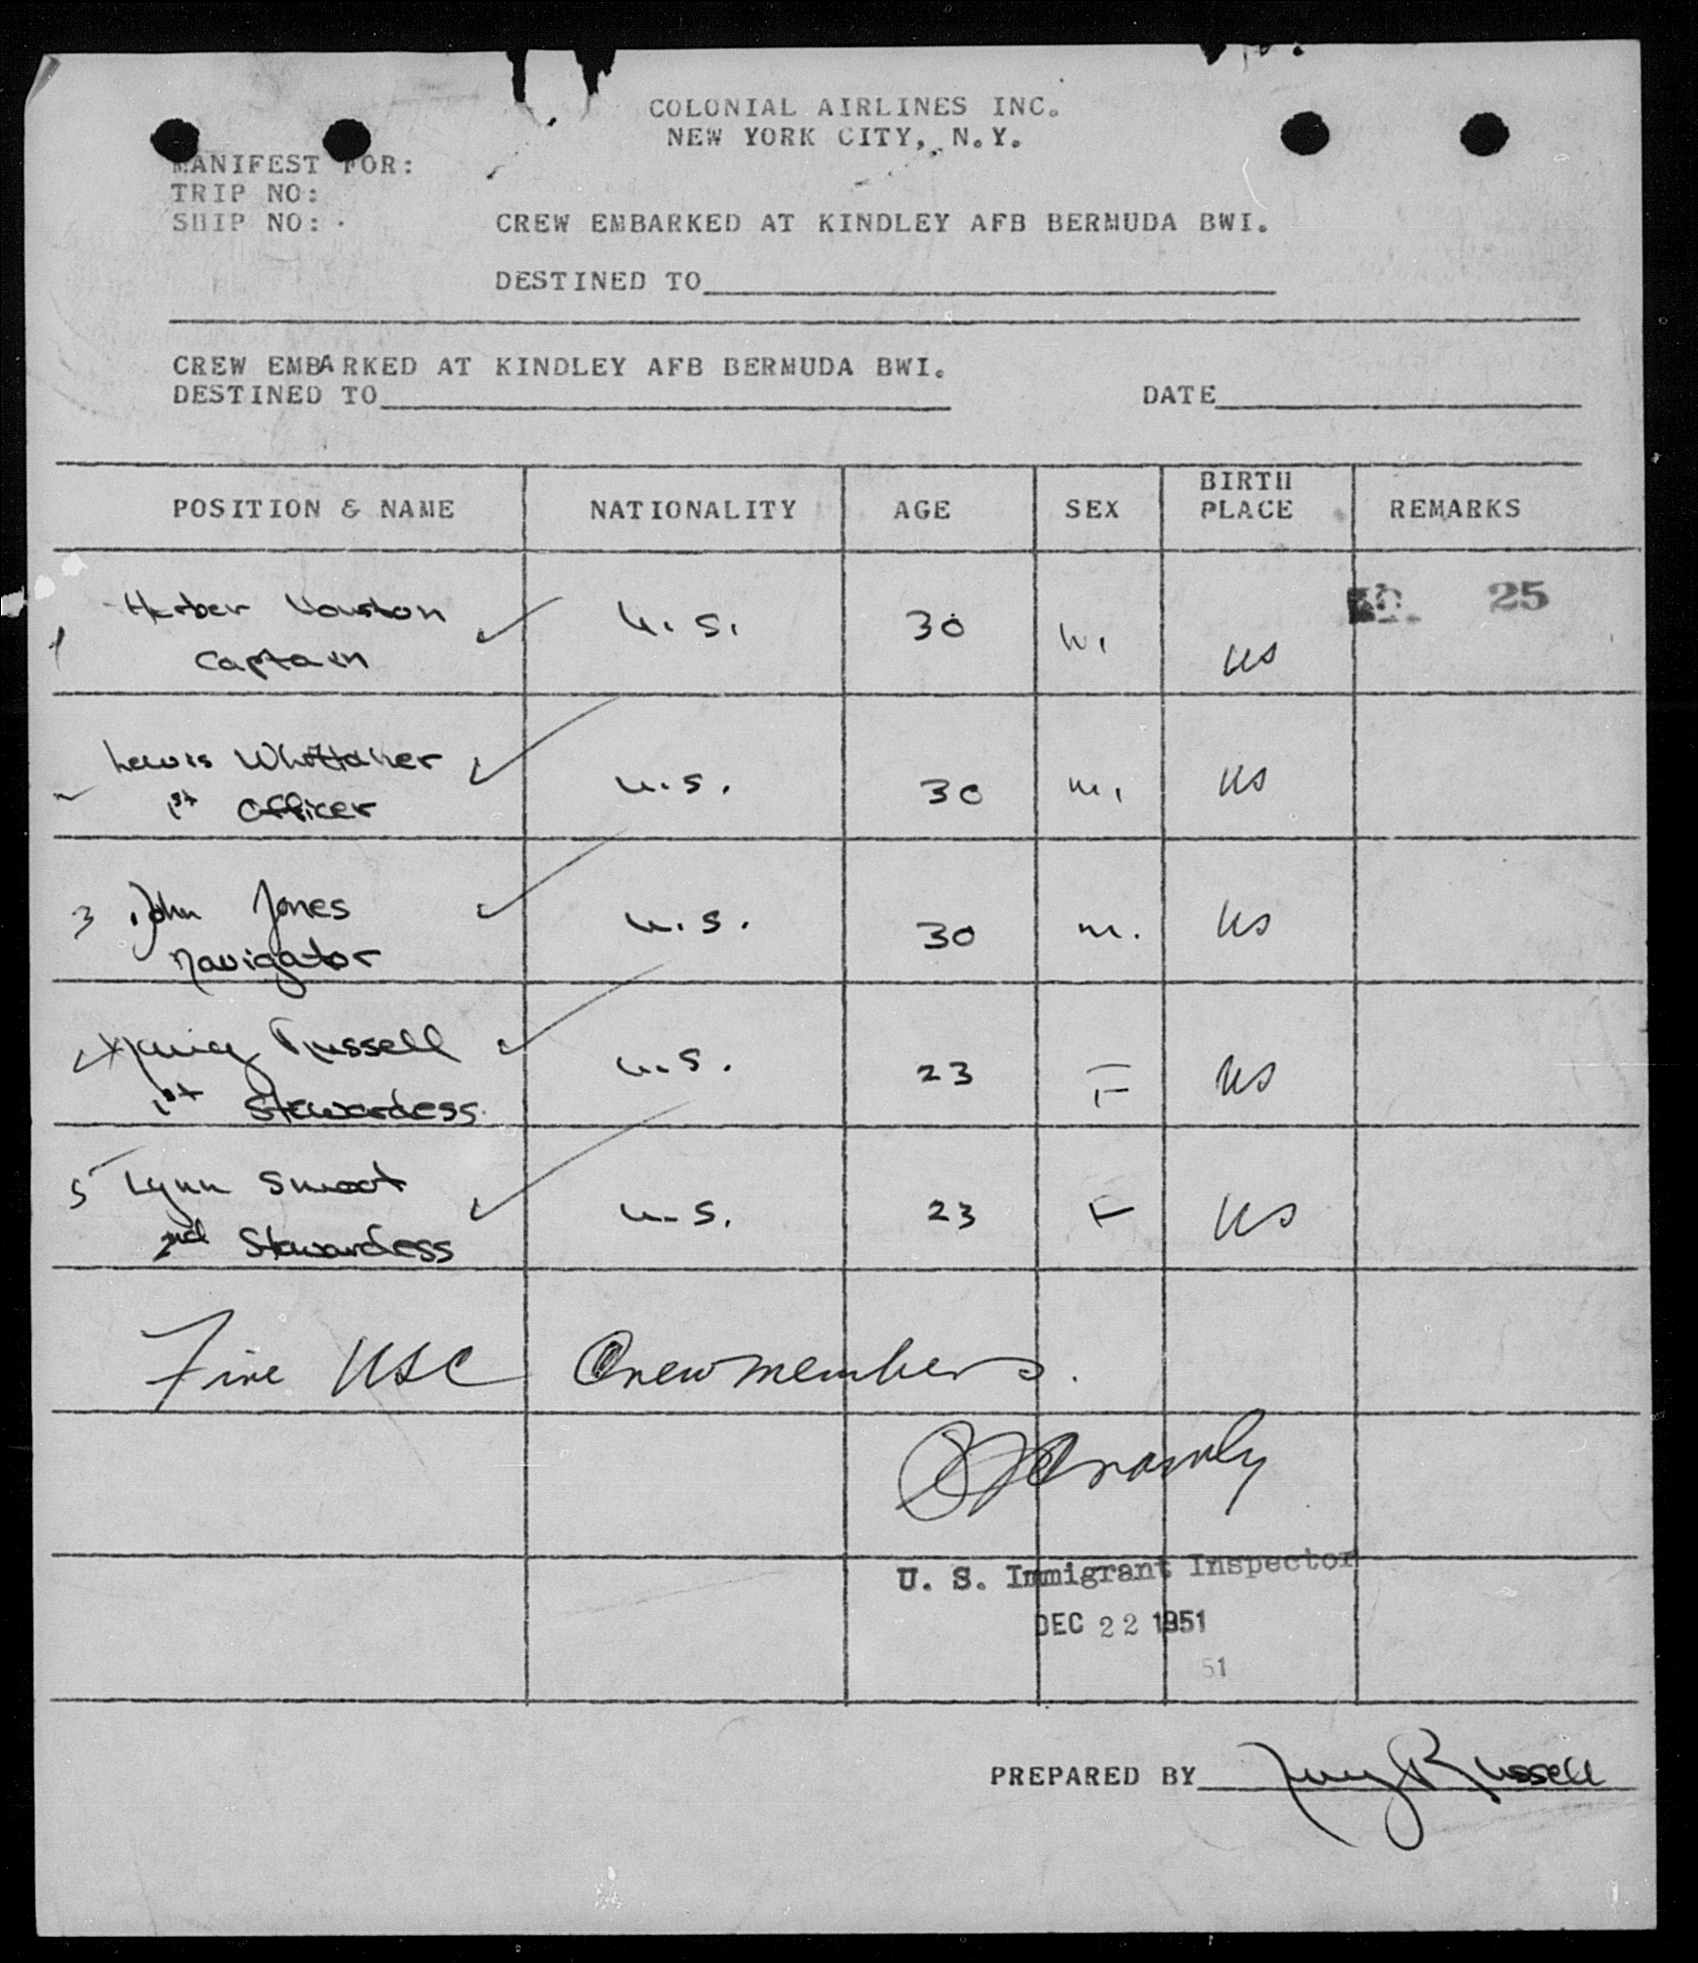 COLONIAL AIRLINES INC.
NEW YORK CITY, N.Y.
MANIFEST FOR:
TRIP NO:
SHIP NO:
CREW EMBARKED AT KINDLEY AFB BERMUDA BWI.
DESTINED TO
CREW EMBARKED AT KINDLEY AFB BERMUDA BWI.
DESTINED TO DATE
POSITION & NAME NATIONALITY AGE SEX BIRTH PLACE REMARKS
25
1 Herber Houston U.S. 30 M. US
Captain
Lewis Whittaker U.S. 30 M. US
1st Officer
3 John Jones U.S. 30 M. US
Navigator
Russell U.S. 23 F US
1st Stewardess
5 Lynn Smoot U.S. 23 F US
2nd Stewardess
Five USC Crewmembers.
U. S. Immigrant Inspector
DEC 22 1951
51
PREPARED BY Russell